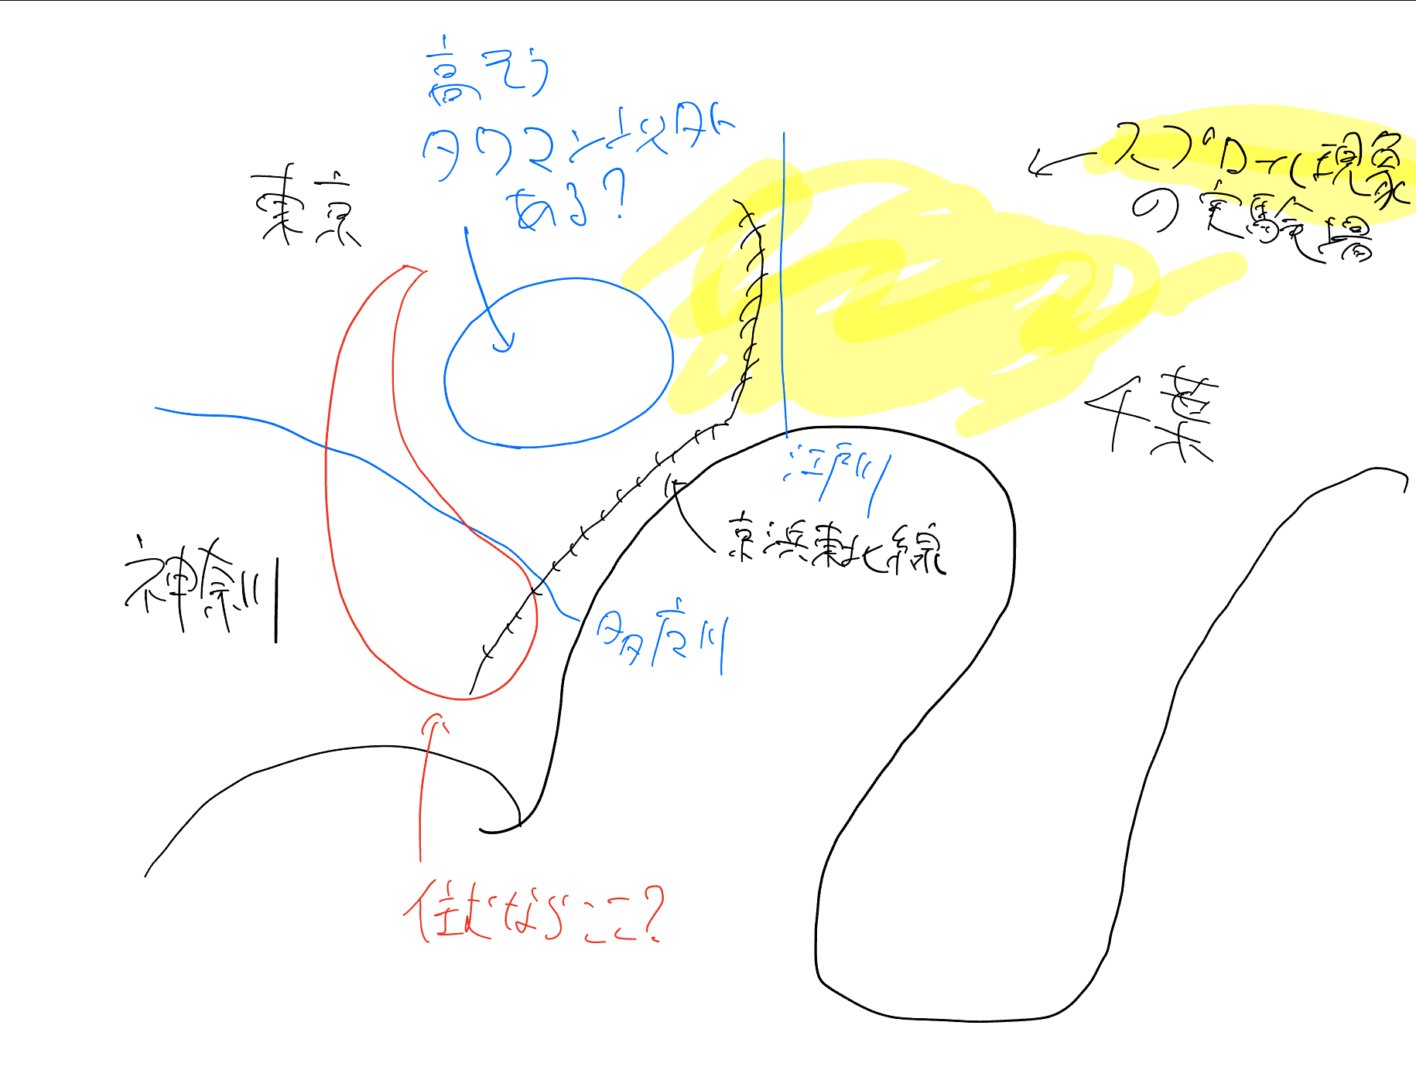 高そう
タワマン以外
ある?
東京
スプロール現象
の実験場
千葉
江戸川
京浜東北線
神奈川
多摩川
住むならここ?